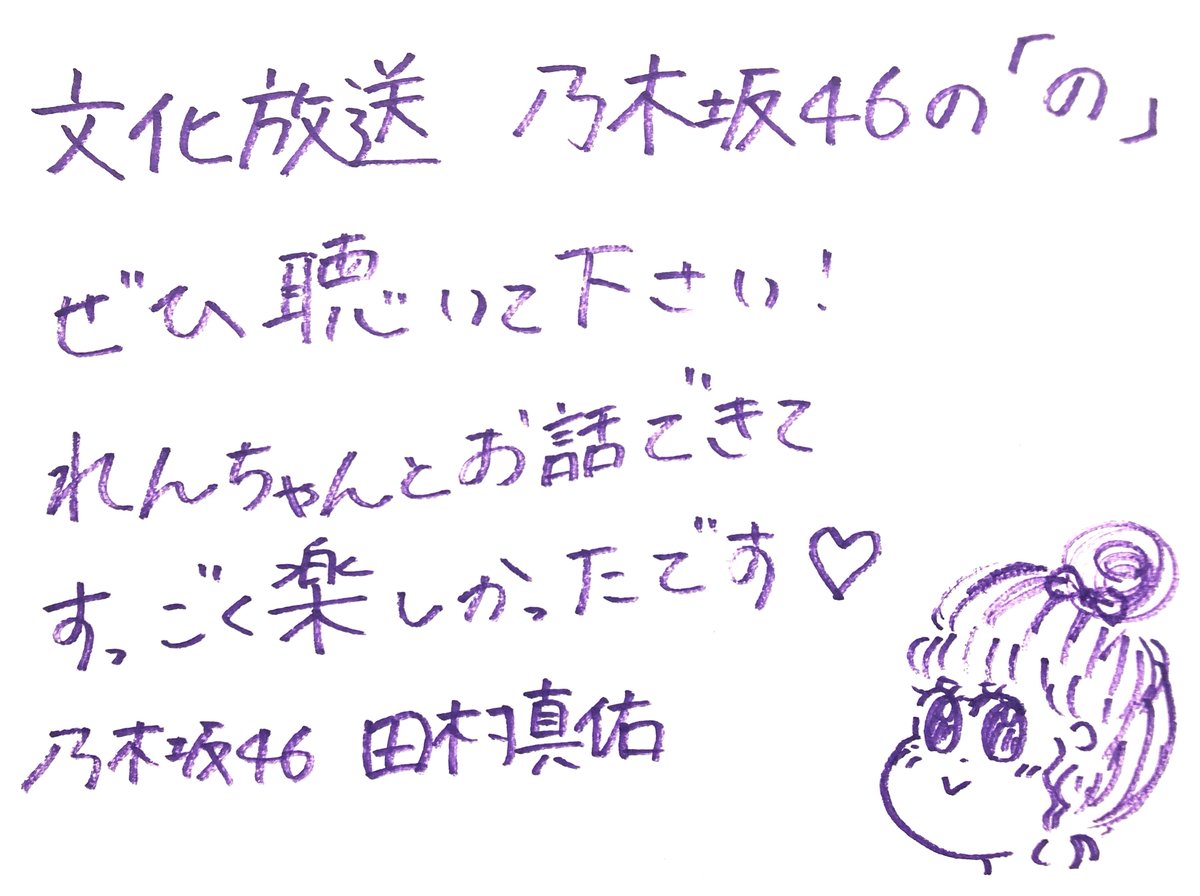 文化放送 乃木坂46の「の」
ぜひ聴いて下さい!
れんちゃんとお話できて
すっごく楽しかったです♡
乃木坂46 田村真佑